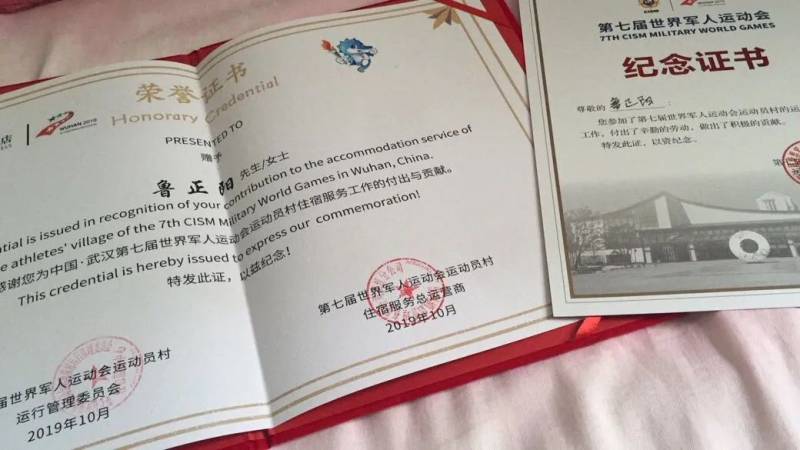 店
WUHAN 2019
荣誉证书
Honorary Credential
PRESENTED TO
赠予
鲁正阳 先生/女士
ential is issued in recognition of your contribution to the accommodation service of
e athletes' village of the 7th CISM Military World Games in Wuhan, China.
感谢您为中国·武汉第七届世界军人运动会运动员村住宿服务工作的付出与贡献。
This credential is hereby issued to express our commemoration!
特发此证，以兹纪念！
第七届世界军人运动会运动员村
住宿服务总运营商
2019年10月
届世界军人运动会运动员村
运行管理委员会
2019年10月
第七届世界军人运动会
7TH CISM MILITARY WORLD GAMES
纪念证书
尊敬的 鲁正阳：
您参加了第七届世界军人运动会运动员村的运
工作，付出了辛勤的劳动，做出了积极的贡献。
特发此证，以资纪念。